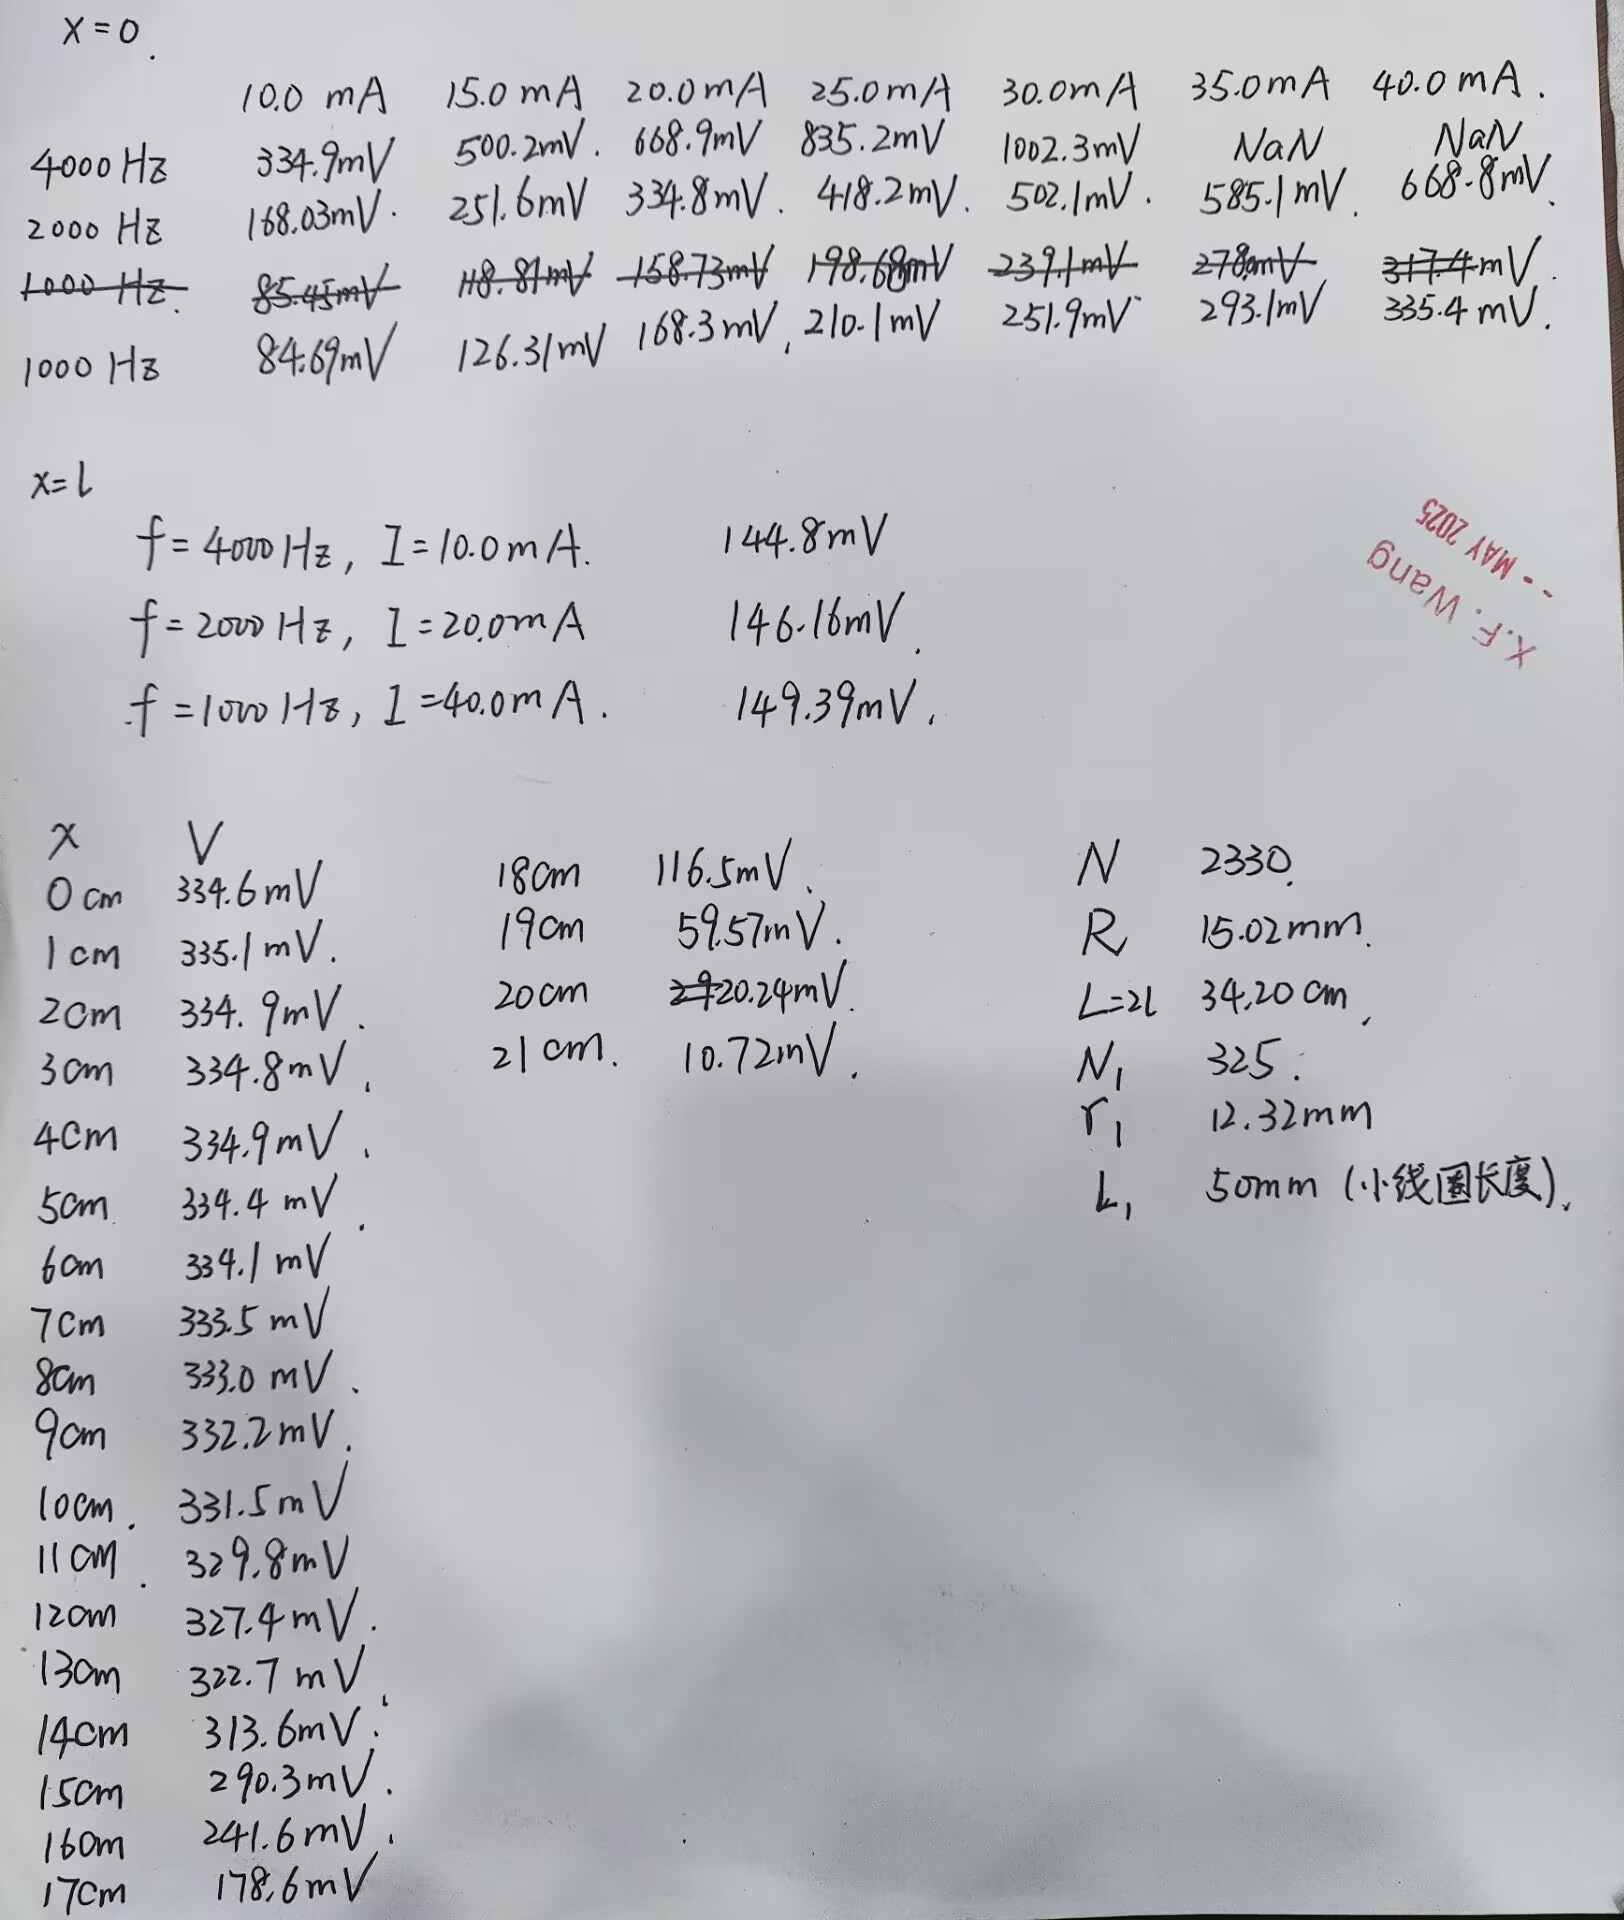 x=0.
10.0 mA 15.0 mA 20.0 mA 25.0 mA 30.0 mA 35.0 mA 40.0 mA.
4000 Hz 334.9mV 500.2mV. 668.9mV 835.2mV 1002.3mV NaN NaN
2000 Hz 168.03mV. 251.6mV 334.8mV. 418.2mV. 502.1mV. 585.1mV. 668.8mV.
1000 Hz. 85.45mV 118.81mV 158.73mV 198.68mV 239.1mV 278.0mV 317.4mV.
1000 Hz 84.69mV 126.31mV 168.3mV. 210.1mV 251.9mV 293.1mV 335.4mV.
x=l
f=4000Hz, I=10.0mA. 144.8mV
f=2000Hz, I=20.0mA 146.16mV.
f=1000Hz, I=40.0mA. 149.39mV.
X.F. Wang
- - MAY 2025
x V
0cm 334.6mV
1cm 335.1mV.
2cm 334.9mV.
3cm 334.8mV.
4cm 334.9mV.
5cm 334.4mV.
6cm 334.1mV
7cm 333.5mV
8cm 333.0mV.
9cm 332.2mV.
10cm. 331.5mV
11cm. 329.8mV
12cm 327.4mV.
13cm 322.7mV.
14cm 313.6mV.
15cm 290.3mV.
16cm 241.6mV.
17cm 178.6mV
18cm 116.5mV.
19cm 59.57mV.
20cm 20.24mV.
21cm. 10.72mV.
N 2330.
R 15.02mm.
L=2l 34.20cm.
N₁ 325.
r₁ 12.32mm
L₁ 50mm (小线圈长度).